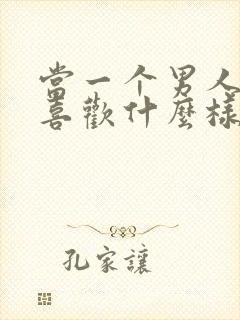 當一个男人
喜歡什麼樣
孔家讓